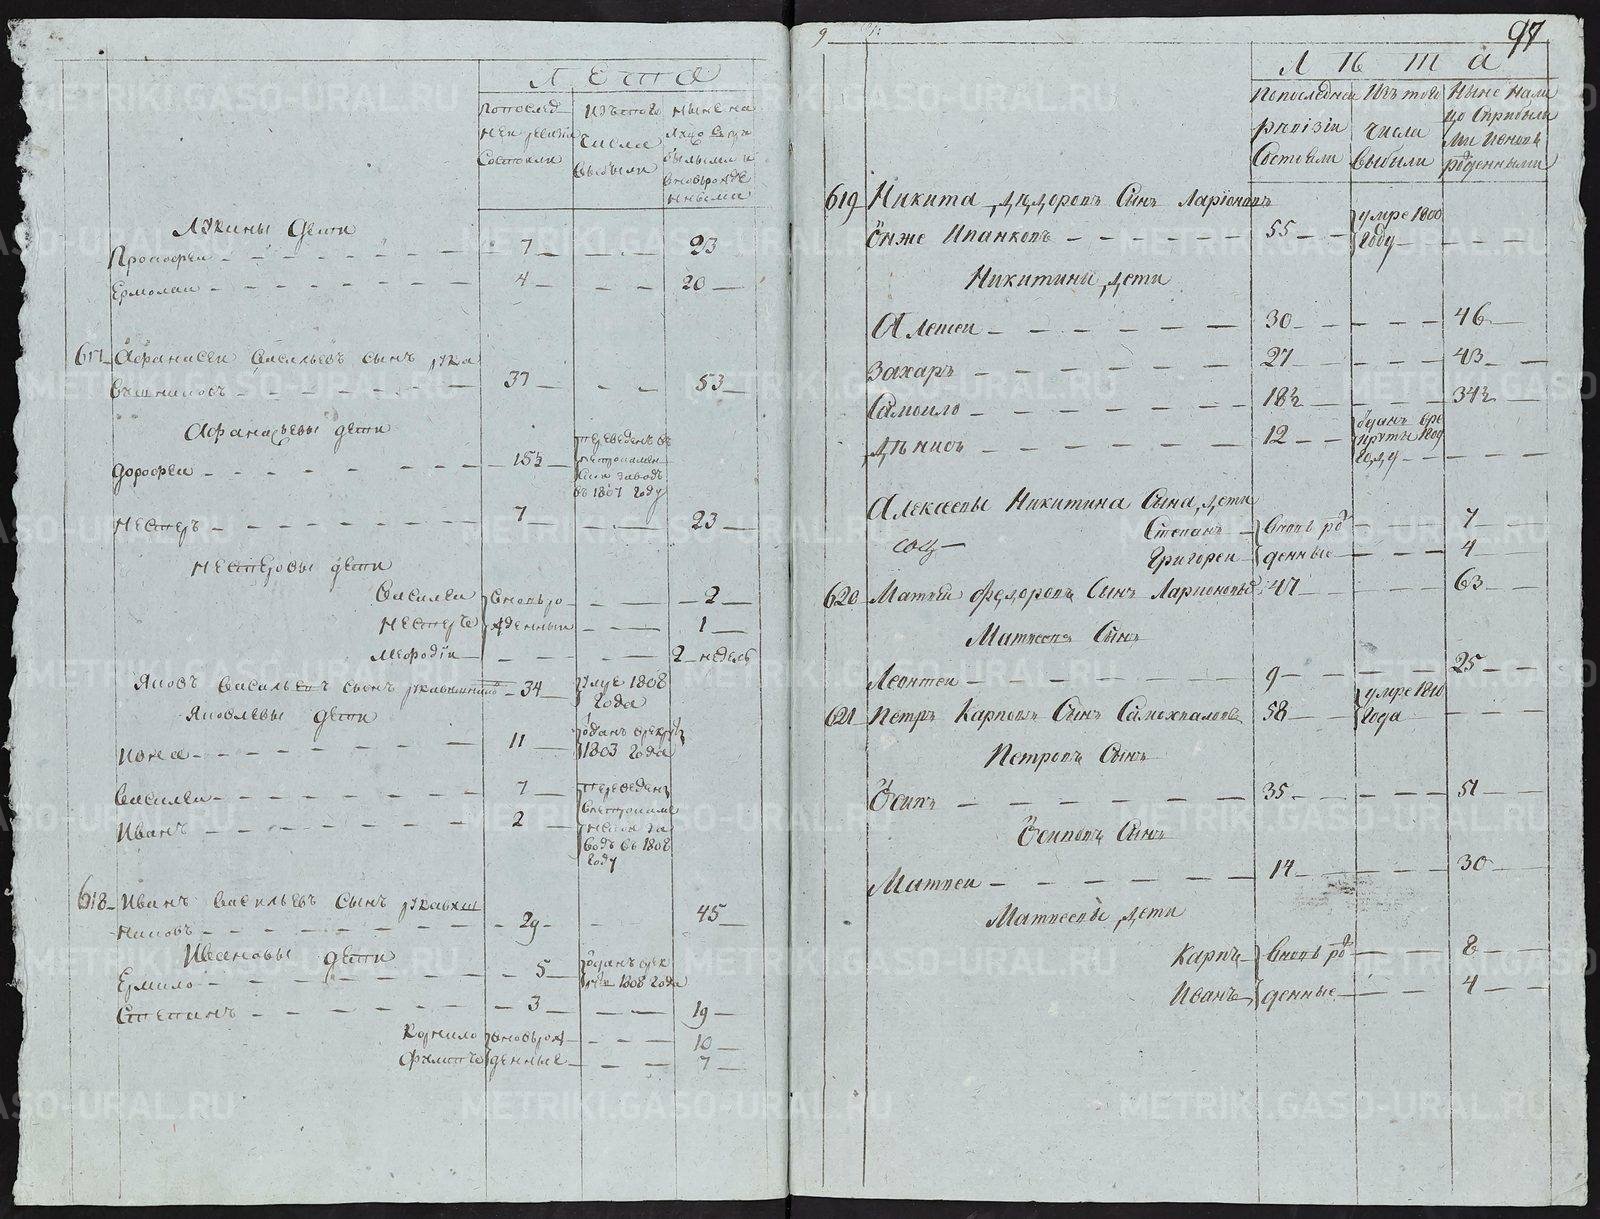 Лѣта
По послед
ней ревизіи
Состояли
Изъ того
числа
выбыли
Ныне на
лицо
былыми и
вновьрожде
нными
Лукины дети
Прокофеи 7 23
Ермолаи 4 20
617 Афанасеи Васильевъ сынъ рука
вишниковъ 37 53
Афанасьевы дети
Дорофеи 15½ переведенъ въ
заводъ
въ 1807 году
Нестеръ 7 23
Нестеровы дети
Василеи вновьро 2
Нестеръ жденныи 1
Мефодіи 2 недель
Яковъ Васильевъ сынъ рукавишниковъ 34 умре 1808
года
Яковлевы дети
Иона 11 отданъ врекруты
1803 года
Василеи 7 переведены
Иванъ 2 за
водъ въ 1808
году
618 Иванъ Васильевъ сынъ рукавиш
никовъ 29 45
Ивановы дети
Ермило 5 отданъ врек
руты 1808 года
Степанъ 3 19
Корнило вновьрож 10
Филипъ денные 7
97
Лѣта
По последней
ревізіи
Состояли
Изъ того
числа
выбыли
Ныне нали
цо Сприбылы
ми ивновь
рожденными
619 Никита Ѳедоровъ Сынъ Ларіоновъ
Онже Иванковъ 55 умре 1800
году
Никитины дети
Алексеи 30 46
Захаръ 27 43
Самоило 18½ 34½
Денисъ 12 отданъ вре
круты 1809
году
Алексеевы Никитина Сына дети
Степанъ вновь рож 7
Григореи денные 4
620 Матвеи Федоровъ Сынъ Ларионовъ 47 63
Матвеевъ Сынъ
Леонтеи 9 25
621 Петръ Карповъ Сынъ Самохваловъ 58 умре 1810
года
Петровъ Сынъ
Осипъ 35 51
Осиповъ Сынъ
Матвеи 14 30
Матвеевы дети
Карпъ вновь рож 8
Иванъ денные 4
METRIKI.GASO-URAL.RU